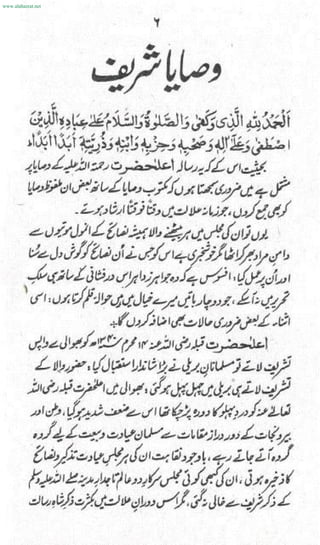 www.alahazrat.net
۶
وصایا شریف
اَلْحَمْدُ لِلّٰهِ الَّذِیْ وَكَفٰی وَالصَّلٰوةُ وَالسَّلَامُ عَلٰی عِبَادِهِ الَّذِیْنَ
اصْطَفٰی وَعَلٰی اٰلِهٖ وَصَحْبِهٖ وَحِزْبِهٖ وَابْنِهٖ وَذُرِّیَّتِهٖ اَبَدًا اَبَدًا
بحیثیت اس کے کہ یہ رسالہ اعلٰحضرت رحمۃ اللہ علیہ کے وصایا پر
مشتمل ہے میں ضروری سمجھتا ہوں کہ مکتوب وصایا کے ساتھ بعض ان ملفوظ وصایا
کو بھی جمع کروں، جو زمانہ علالت میں وقتاً فوقتاً ارشاد ہوئے۔
یوں تو ان کی مجلس میں ہر بیٹھنے والا ہمیشہ نصائح کے انمول موتیوں سے
دامنِ مراد بھر کر اٹھا مگر خوشخبری ہے اس کو جس نے اُن نصائح کو گوشِ دل سے سُنا
اور اُن پر عمل کیا، افسوس ہے کہ وہ جواہر زواہر اس در فشانی کے ساتھ ہی سلک
تحریر میں نہ آسکے، جو دو چار باتیں میرے خیال میں ہیں حوالہ قلم کرتا ہوں؛ اسی
اثناء کے بعض ضروری حالات بھی اضافہ کروں گا۔
اعلٰحضرت قبلہ رضی اللہ عنہ ۱۴ محرم ۱۳۴۰ھ کو بھوالی سے واپس
تشریف لائے تو مسلمانانِ بریلی نے بڑا شاندار استقبال کیا، حضور والا کے
تشریف لاتے ہی بریلی میں چہل پہل ہوگئی، بھوالی میں اعلٰحضرت قبلہ رضی اللہ
تعالٰی عنہ کو دردِ پہلو کا دورہ پڑ چکا تھا اس سے ضعف شدید ہوگیا، وطن اور
بیرونجات کے دور دراز مقامات سے مسلمان عیادت و بیعت کے لیے گروہ کے
گروہ آتے جاتے رہے، باوجود نقاہت ان کی ہر مجلس عیادت تذکیر و نصائح
کا ذخیرہ ہوتی، ان کی کبھی کوئی مجلس سرکارِ دو عالم تاجدارِ مدینہ صلے اللہ علیہ وسلم
کے ذکر شریف سے خالی نہ گئی، مگر اس دورانِ علالت میں بکثرت ذکرِ شاہِ رسالت